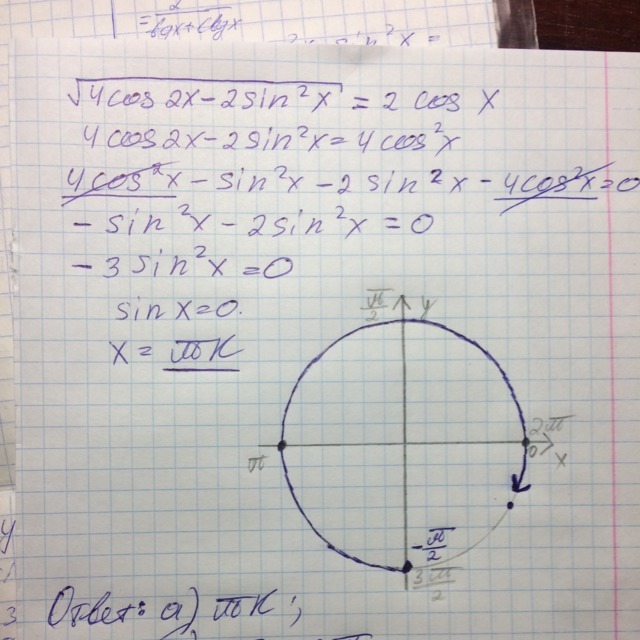 = 2 / tgx + ctgx
sin²x =
√4cos2x − 2sin²x = 2 cos x
4cos2x − 2sin²x = 4cos²x
4cos²x − sin²x − 2sin²x − 4cos²x = 0
− sin²x − 2sin²x = 0
− 3 sin²x = 0
sin x = 0.
x = πk
π/2 y
2π
π 0 x
−π/2
3π/2
Ответ: а) πk;